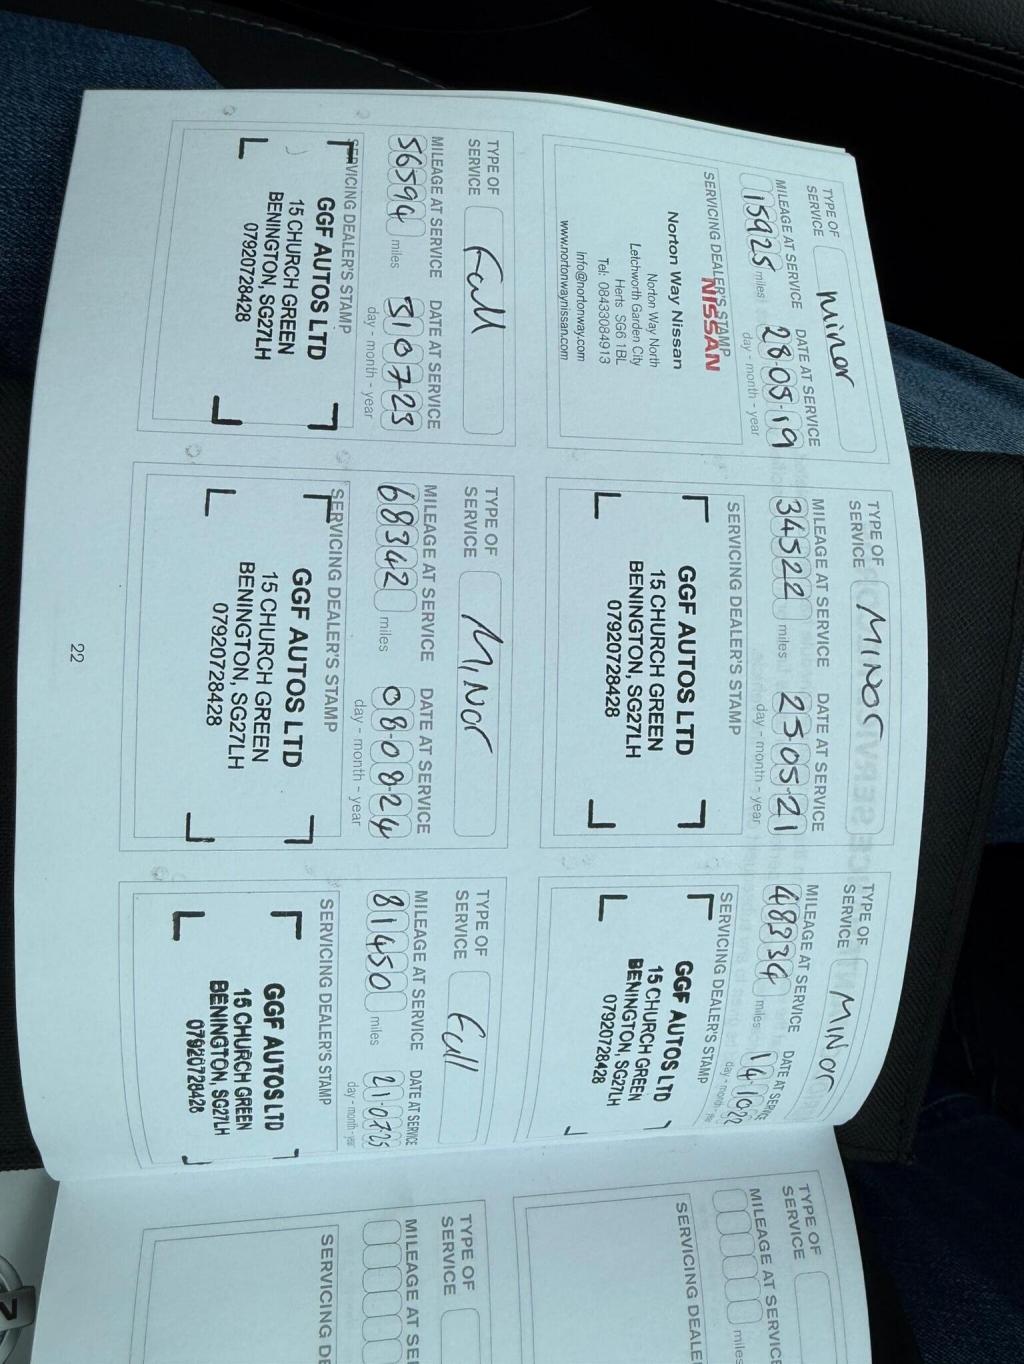 TYPE OF SERVICE Minor
MILEAGE AT SERVICE DATE AT SERVICE
15925 miles 28·05·19
day - month - year
SERVICING DEALER'S STAMP
NISSAN
Norton Way Nissan
Norton Way North
Letchworth Garden City
Herts SG6 1BL
Tel: 08433084913
Info@nortonway.com
www.nortonwaynissan.com
TYPE OF SERVICE MINOr
MILEAGE AT SERVICE DATE AT SERVICE
34522 miles 25·05·21
day - month - year
SERVICING DEALER'S STAMP
GGF AUTOS LTD
15 CHURCH GREEN
BENINGTON, SG27LH
07920728428
TYPE OF SERVICE MINOr
MILEAGE AT SERVICE DATE AT SERVICE
48334 miles 14·1022
day - month - year
SERVICING DEALER'S STAMP
GGF AUTOS LTD
15 CHURCH GREEN
BENINGTON, SG27LH
07920728428
TYPE OF SERVICE Full
MILEAGE AT SERVICE DATE AT SERVICE
56594 miles 310723
day - month - year
SERVICING DEALER'S STAMP
GGF AUTOS LTD
15 CHURCH GREEN
BENINGTON, SG27LH
07920728428
TYPE OF SERVICE MINOr
MILEAGE AT SERVICE DATE AT SERVICE
68342 miles 08·08·24
day - month - year
SERVICING DEALER'S STAMP
GGF AUTOS LTD
15 CHURCH GREEN
BENINGTON, SG27LH
07920728428
TYPE OF SERVICE Full
MILEAGE AT SERVICE DATE AT SERVICE
81450 miles 21·07·25
day - month - year
SERVICING DEALER'S STAMP
GGF AUTOS LTD
15 CHURCH GREEN
BENINGTON, SG27LH
07920728428
22
TYPE OF SERVICE
MILEAGE AT SERVICE
miles
SERVICING DEALE
TYPE OF SERVICE
MILEAGE AT SE
SERVICING DE